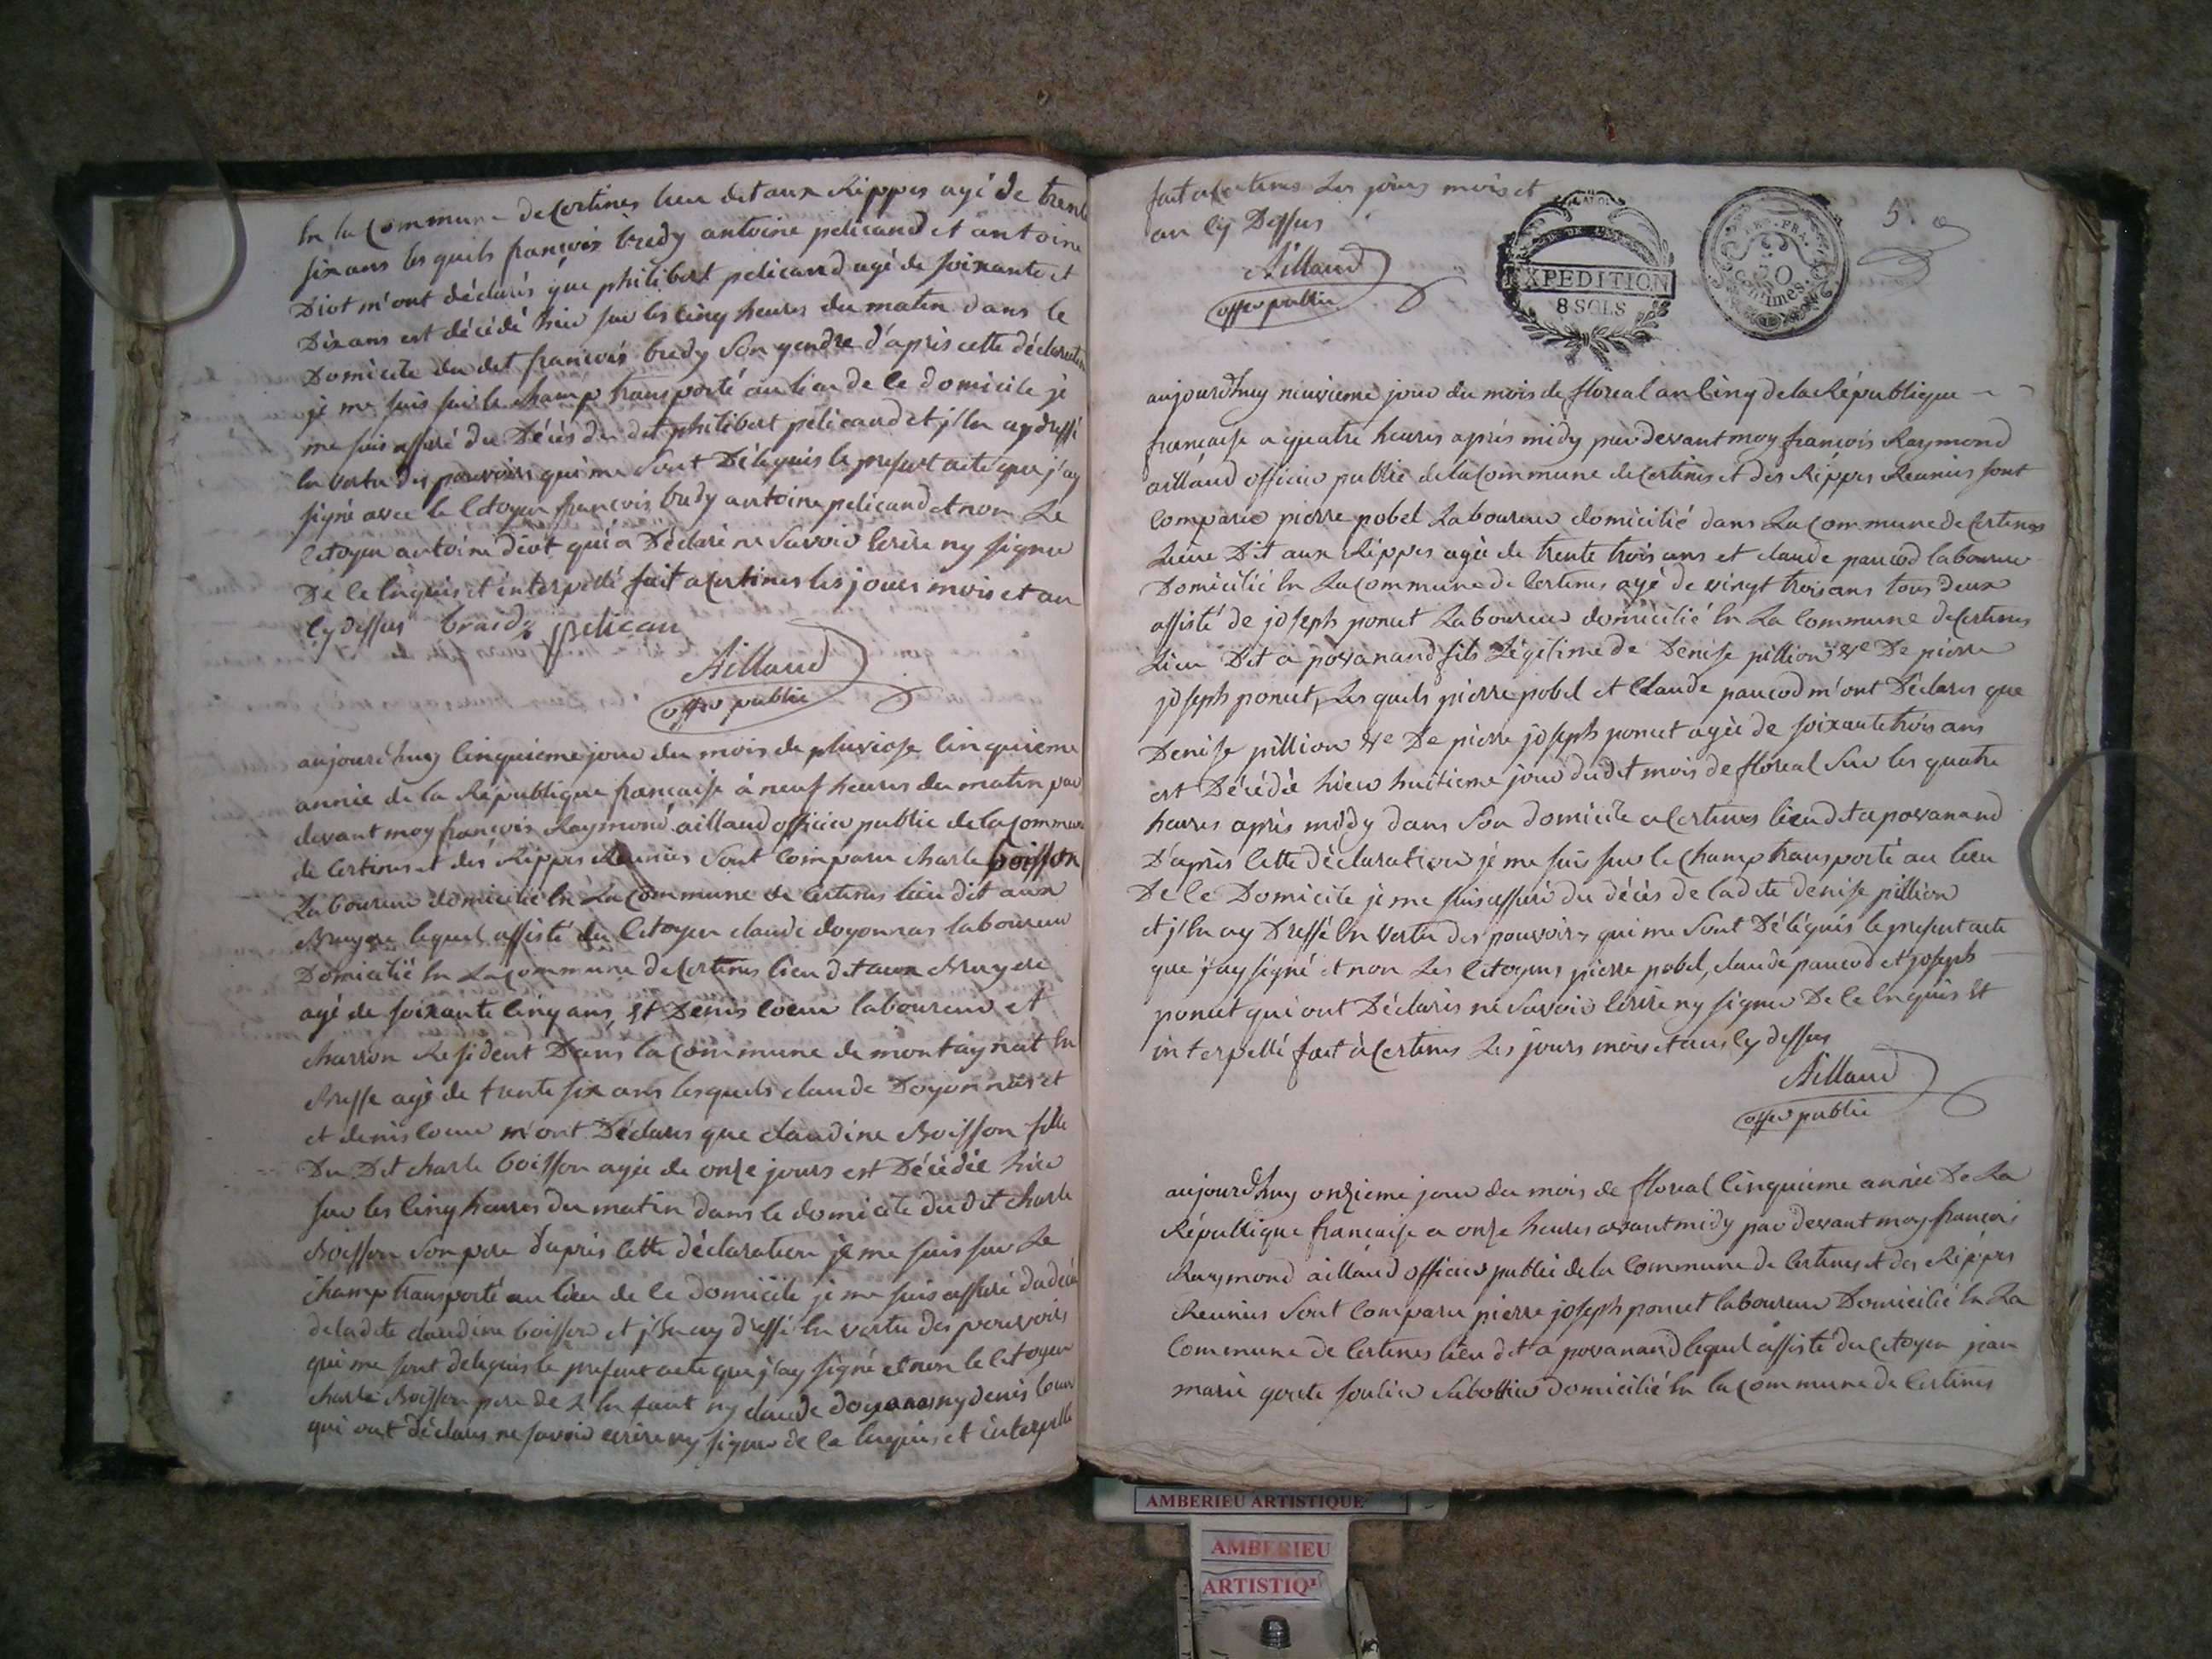 En la Commune de Certines lieu dit aux Rippes agé de trente
six ans les quels françois bredy antoine pelicand et antoine
Diot m'ont déclarés que philibert pelicand agé de soixante et
Dix ans est décédé hier sur les cinq heures du matin dans le
Domicile du dit francois bredy son gendre d'après cette déclaration
je me suis sur le champ transporté au lieu de ce domicile je
me suis assuré du Décès du dit philibert pelicand et j'en ay dressé
En vertu des pouvoirs qui me sont Délégués le present acte que j'ay
signé avec le Citoyen francois bredy antoine pelicand et non Le
Citoyen antoine diot qui a Déclaré ne savoir Ecrire ny signer
De ce Enquis et interpellé fait a Certines les jours mois et an
Cy dessus braidy pelican
Aillaud
offier public
aujourd'huy Cinquieme jour du mois de pluviose Cinquieme
année de la République francaise à neuf heures du matin par
devant moy françois Raymond aillaud officier public de la Commune
de Certines et des Rippes Reunies sont Comparu charle boisson
Laboureur domicilié En La Commune de Certines lieu dit aux
Bruyere lequel assisté du Citoyen claude doyonnas laboureur
Domicilié En La Commune de Certines lieu dit aux Bruyere
agé de soixante Cinq ans et Denis Coeur laboureur et
charron Resident Dans la Commune de montaignat En
Bresse agé de trente six ans lesquels claude Doyonnas et
et denis Coeur m'ont Déclarés que claudine Boisson fille
Du Dit charle boisson agée de onze jours est Décédée hier
sur les Cinq heures du matin dans le domicile du dit charle
Boisson son pere d'après Cette déclaration je me suis sur Le
champ transporté au lieu de ce domicile je me suis assuré du décès
de la dite claudine boisson et j'En ay dressé En vertu des pouvoirs
qui me sont délégués le present acte que j'ay signé et non le Citoyen
charle Boisson pere de L'Enfant ny claude doyonas ny denis Coeur
qui ont déclarés ne savoir ecrire ny signer de ce Enquis et interpellé
fait a Certines Les jours mois et
an Cy Dessus
Aillaud
offier public
EXPEDITION
8 SOLS
REP. FRA.
50
Centimes.
5.
aujourd'huy neuvieme jour du mois de floreal an Cinq de la République
francaise a quatre heures après midy par devant moy francois Raymond
aillaud officier public de la Commune de Certines et des Rippes Reunies sont
Comparu pierre pobel Laboureur domicilié dans La Commune de Certines
Lieu Dit aux Rippes agée de trente trois ans et claude paucod laboureur
Domicilié En La Commune de Certines agé de vingt trois ans tous deux
assisté de joseph poncet Laboureur domicilié En La Commune de Certines
Lieu Dit a povanand fils Légitime de Denise pillion ve De pierre
joseph poncet, Les quels pierre pobel et Claude paucod m'ont Déclarés que
Denise pillion ve De pierre joseph poncet agée de soixante trois ans
est Décédée hier huitieme jour dudit mois de floreal sur les quatre
heures après midy dans son domicile a Certines lieu dit a povanand
D'après Cette déclaration je me suis sur le Champ transporté au lieu
De ce Domicile je me suis assuré du décès de ladite denise pillion
et j'En ay Dressé En vertu des pouvoirs qui me sont Délégués le present acte
que j'ay signé et non Les Citoyens pierre pobel, claude paucod et joseph
poncet qui ont Déclarés ne savoir Ecrire ny signer De ce Enquis et
interpellé fait à Certines Les jours mois et ans Cy dessus
Aillaud
offier public
aujourd'huy onzieme jour du mois de floreal Cinquieme année De La
République francaise a onze heures avant midy par devant moy francois
Raymond aillaud officier public de la Commune de Certines et des Rippes
Reunies sont Comparu pierre joseph poncet laboureur Domicilié En La
Commune de Certines lieu dit a povanand lequel assisté du Citoyen jean
marie goute soulier sabottier domicilié En la Commune de Certines
AMBERIEU ARTISTIQUE
AMBERIEU
ARTISTIQ